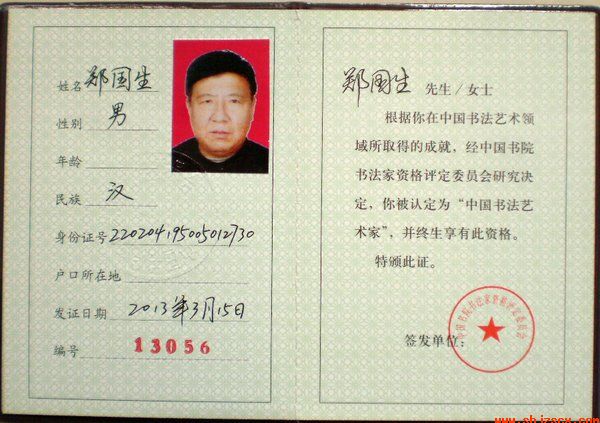 姓名 郑国生
性别 男
年龄
民族 汉
身份证号 220204195005012730
户口所在地
发证日期 2013年3月15日
编号 13056
郑国生 先生/女士
根据你在中国书法艺术领
域所取得的成就，经中国书院
书法家资格评定委员会研究决
定，你被认定为“中国书法艺
术家”，并终生享有此资格。
特颁此证。
签发单位：
中国书院书法家资格评定委员会